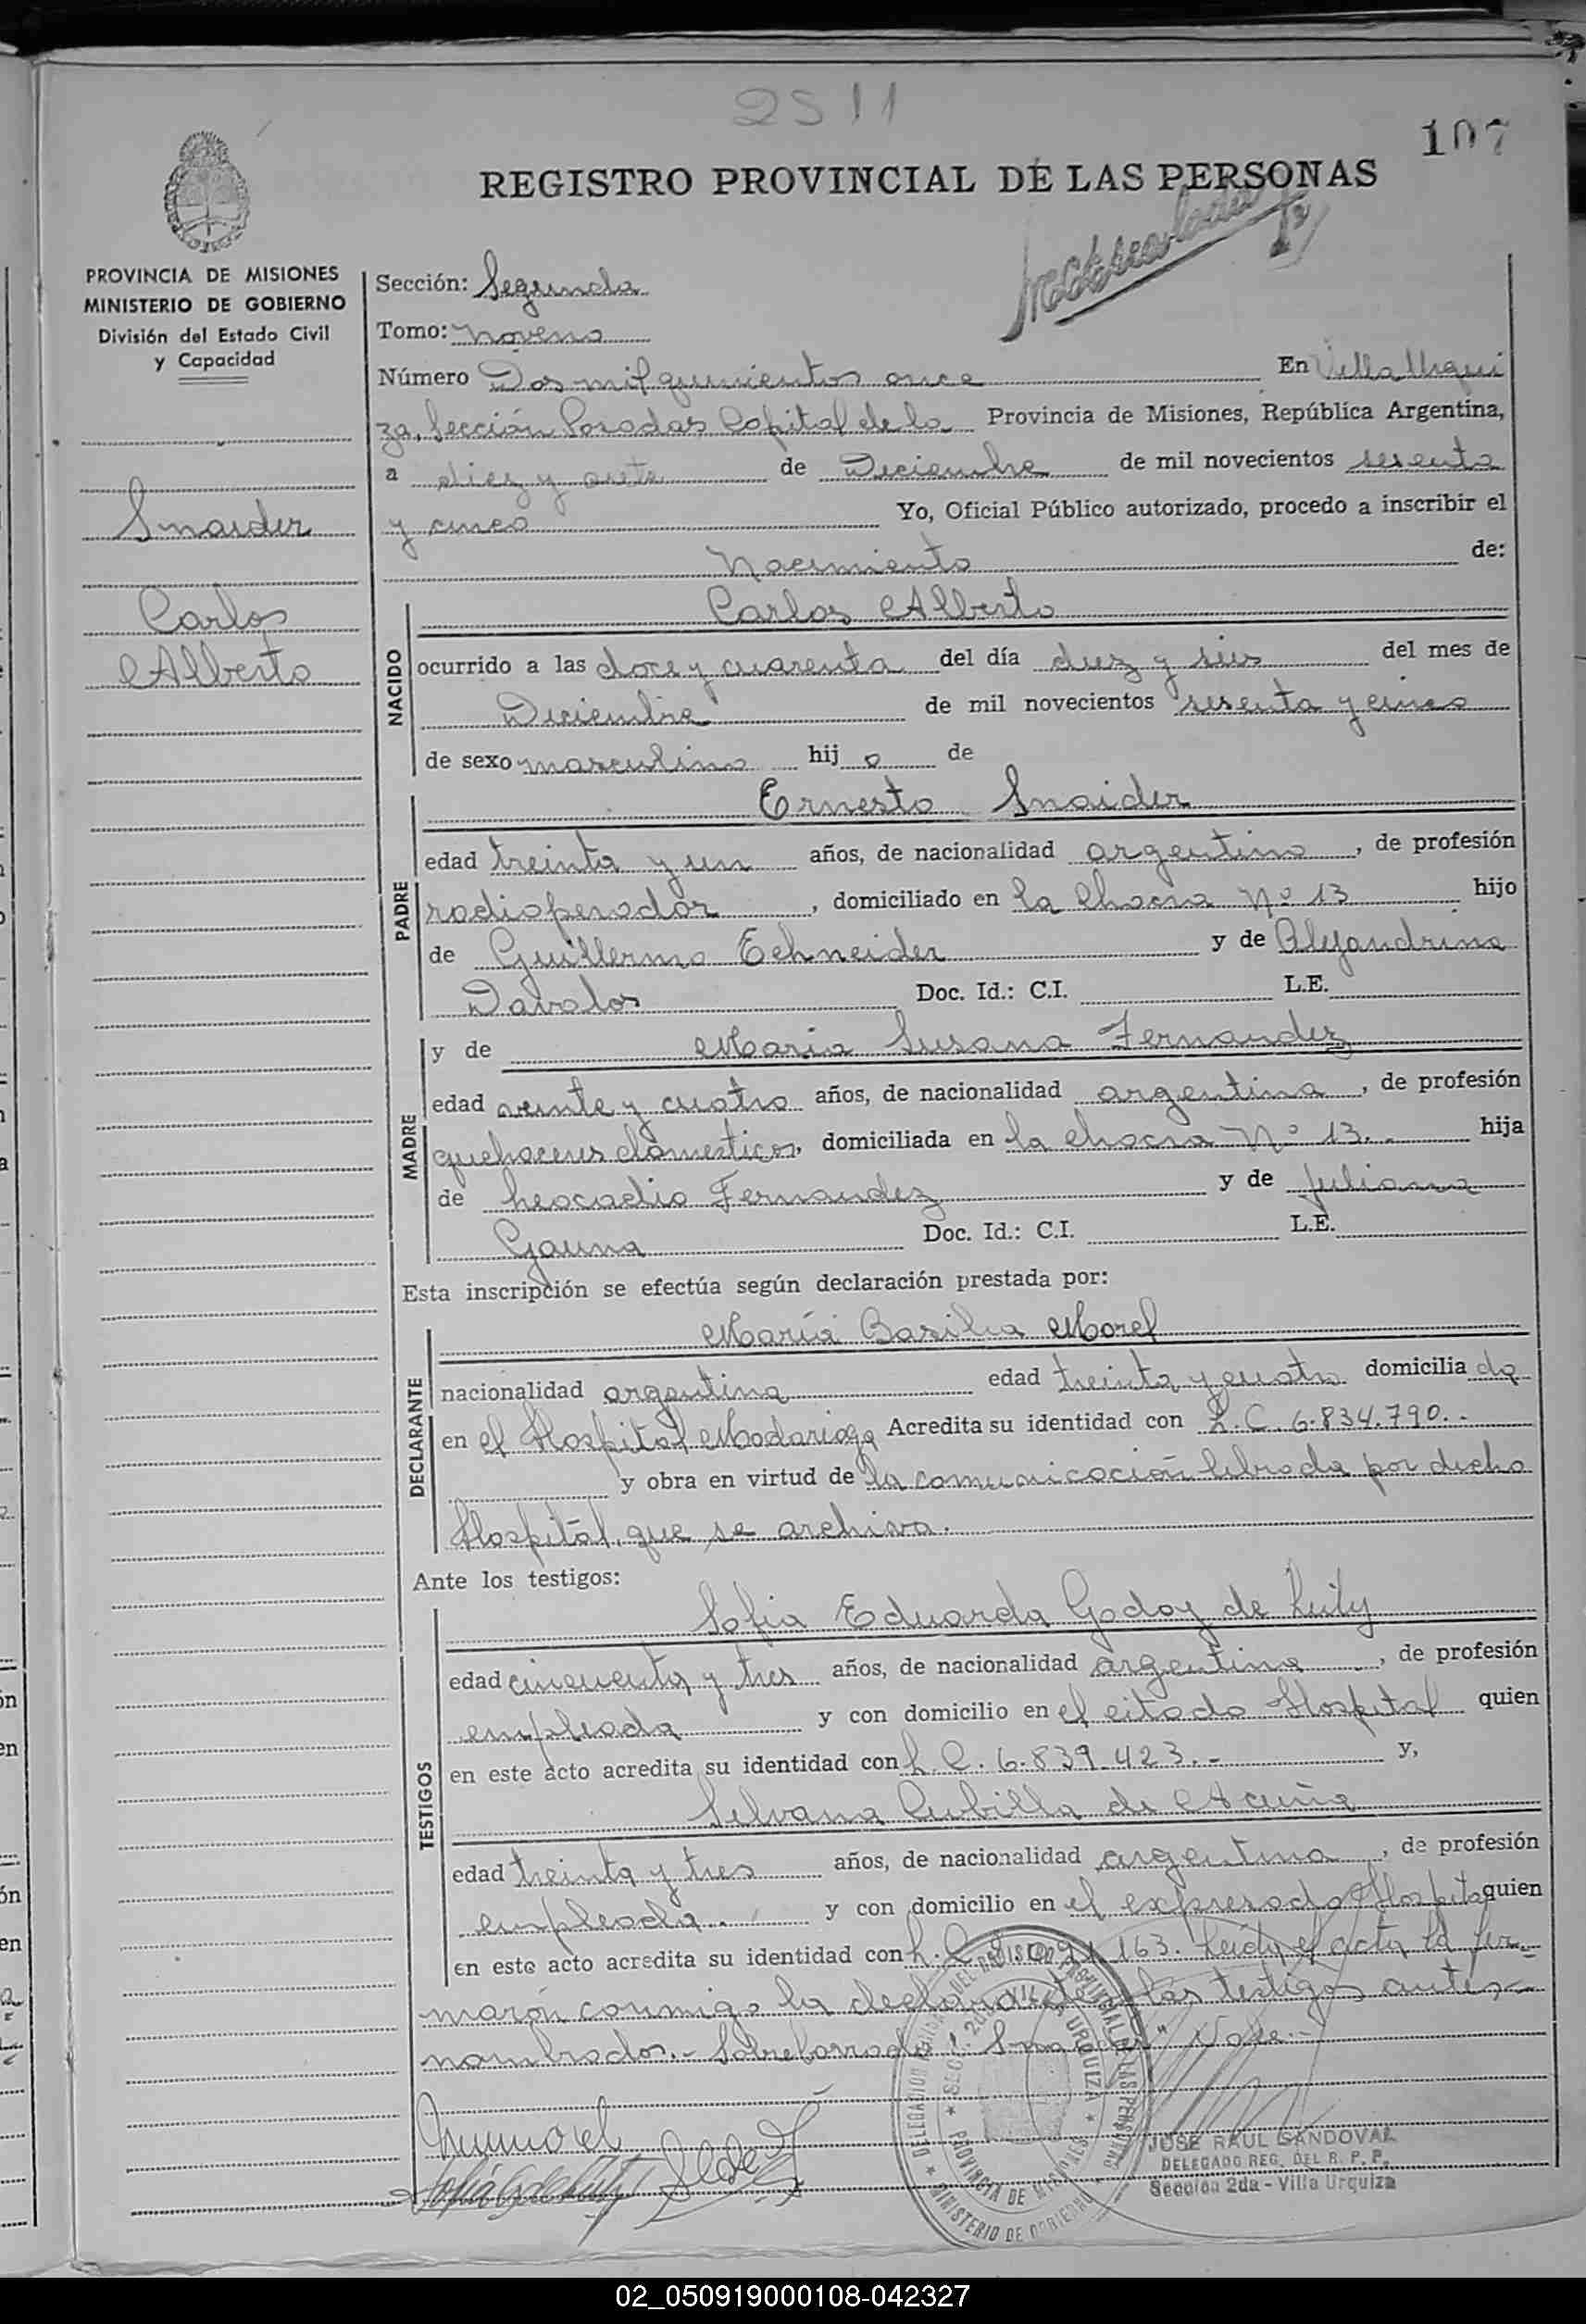 2511
107
REGISTRO PROVINCIAL DE LAS PERSONAS
PROVINCIA DE MISIONES
MINISTERIO DE GOBIERNO
División del Estado Civil
y Capacidad
Snaider
Carlos
Alberto
Sección: Segunda
Tomo: Noveno
Número Dos mil quinientos once En Villa Urqui
za, Sección Posadas Capital de la Provincia de Misiones, República Argentina,
a diez y siete de Diciembre de mil novecientos sesenta
y cinco Yo, Oficial Público autorizado, procedo a inscribir el
Nacimiento de:
NACIDO
Carlos Alberto
ocurrido a las doce y cuarenta del día diez y seis del mes de
Diciembre de mil novecientos sesenta y cinco
de sexo masculino hijo de
PADRE
Ernesto Snaider
edad treinta y un años, de nacionalidad argentino, de profesión
radioperador, domiciliado en la Chacra Nº 13 hijo
de Guillermo Schneider y de Alejandrina
Davalos Doc. Id.: C.I. L.E.
MADRE
y de Maria Susana Fernandez
edad veinte y cuatro años, de nacionalidad argentina, de profesión
quehaceres domesticos, domiciliada en la chacra Nº 13.- hija
de Leocadio Fernandez y de Juliana
Gauna Doc. Id.: C.I. L.E.
Esta inscripción se efectúa según declaración prestada por:
DECLARANTE
María Basilia Morel
nacionalidad argentina edad treinta y cuatro domiciliada
en el Hospital Madariaga Acredita su identidad con L.C. 6.834.790.-
y obra en virtud de la comunicación librada por dicho
Hospital, que se archiva.
Ante los testigos:
TESTIGOS
Sofia Eduarda Godoy de
edad cincuenta y tres años, de nacionalidad argentina, de profesión
empleada y con domicilio en el citado Hospital quien
en este acto acredita su identidad con L.C. 6.839.423.- y,
Silvana Cubilla de Acuña
edad treinta y tres años, de nacionalidad argentina, de profesión
empleada. y con domicilio en el expresado Hospital quien
en este acto acredita su identidad con L.C. 163. Leida el acta la fir-
maron conmigo la declarante y las testigos antes
nombrados.- Sobreborrado: "Snaider" Vale.-
DELEGACION DEL REGISTRO PROVINCIAL DE LAS PERSONAS
SECC. 2da. VILLA URQUIZA
PROVINCIA DE MISIONES
MINISTERIO DE GOBIERNO
JOSE RAUL SANDOVAL
DELEGADO REG. DEL R. P. P.
Sección 2da - Villa Urquiza
02_050919000108-042327